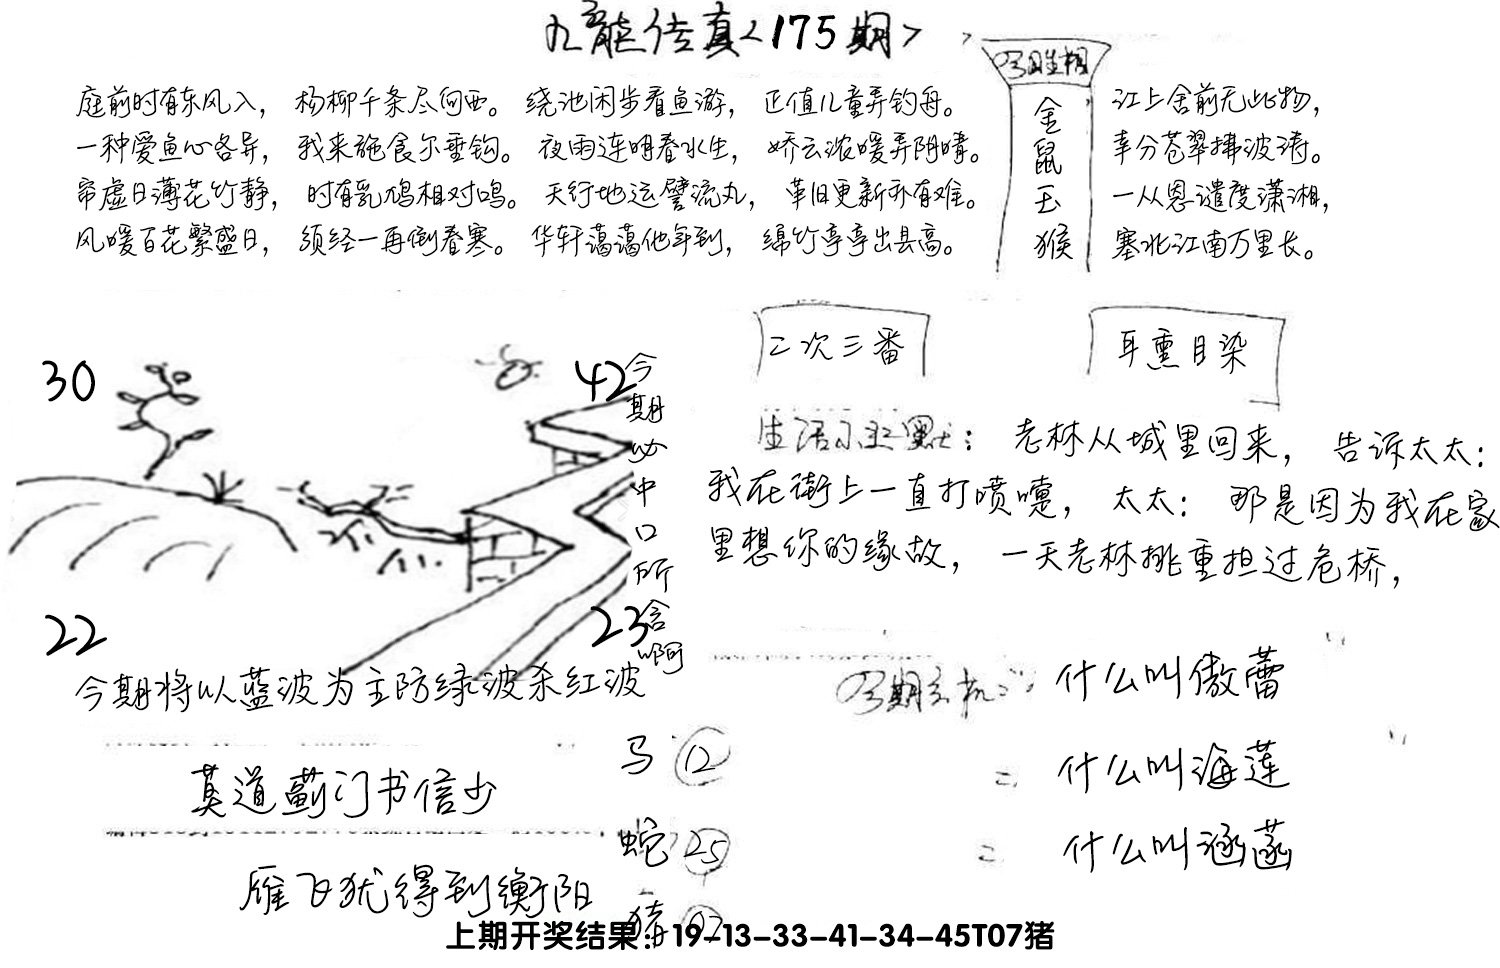 九龍传真<175期>
庭前时有东风入， 杨柳千条尽向西。 绕池闲步看鱼游， 正值儿童弄钓舟。
一种爱鱼心各异， 我来施食尔垂钩。 夜雨连明春水生， 娇云浓暖弄阴晴。
帘虚日薄花竹静， 时有乳鸠相对鸣。 天行地运譬流丸， 革旧更新亦有难。
风暖百花繁盛日， 须经一再倒春寒。 华轩蔼蔼他年到， 绵竹亭亭出县高。
金
鼠
玉
猴
江上舍前无此物，
幸分苍翠拂波涛。
一从恩谴度潇湘，
塞北江南万里长。
二次三番
耳熏目染
30
42
22
23
今期必中口所含啊
今期将以蓝波为主防绿波杀红波
生活小幽默： 老林从城里回来， 告诉太太：
我在街上一直打喷嚏， 太太： 那是因为我在家
里想你的缘故， 一天老林挑重担过危桥，
今期玄机：什么叫傲蕾
= 什么叫海莲
= 什么叫涵菡
莫道蓟门书信少
雁飞犹得到衡阳
马 12
蛇 25
猪 07
上期开奖结果：19-13-33-41-34-45T07猪